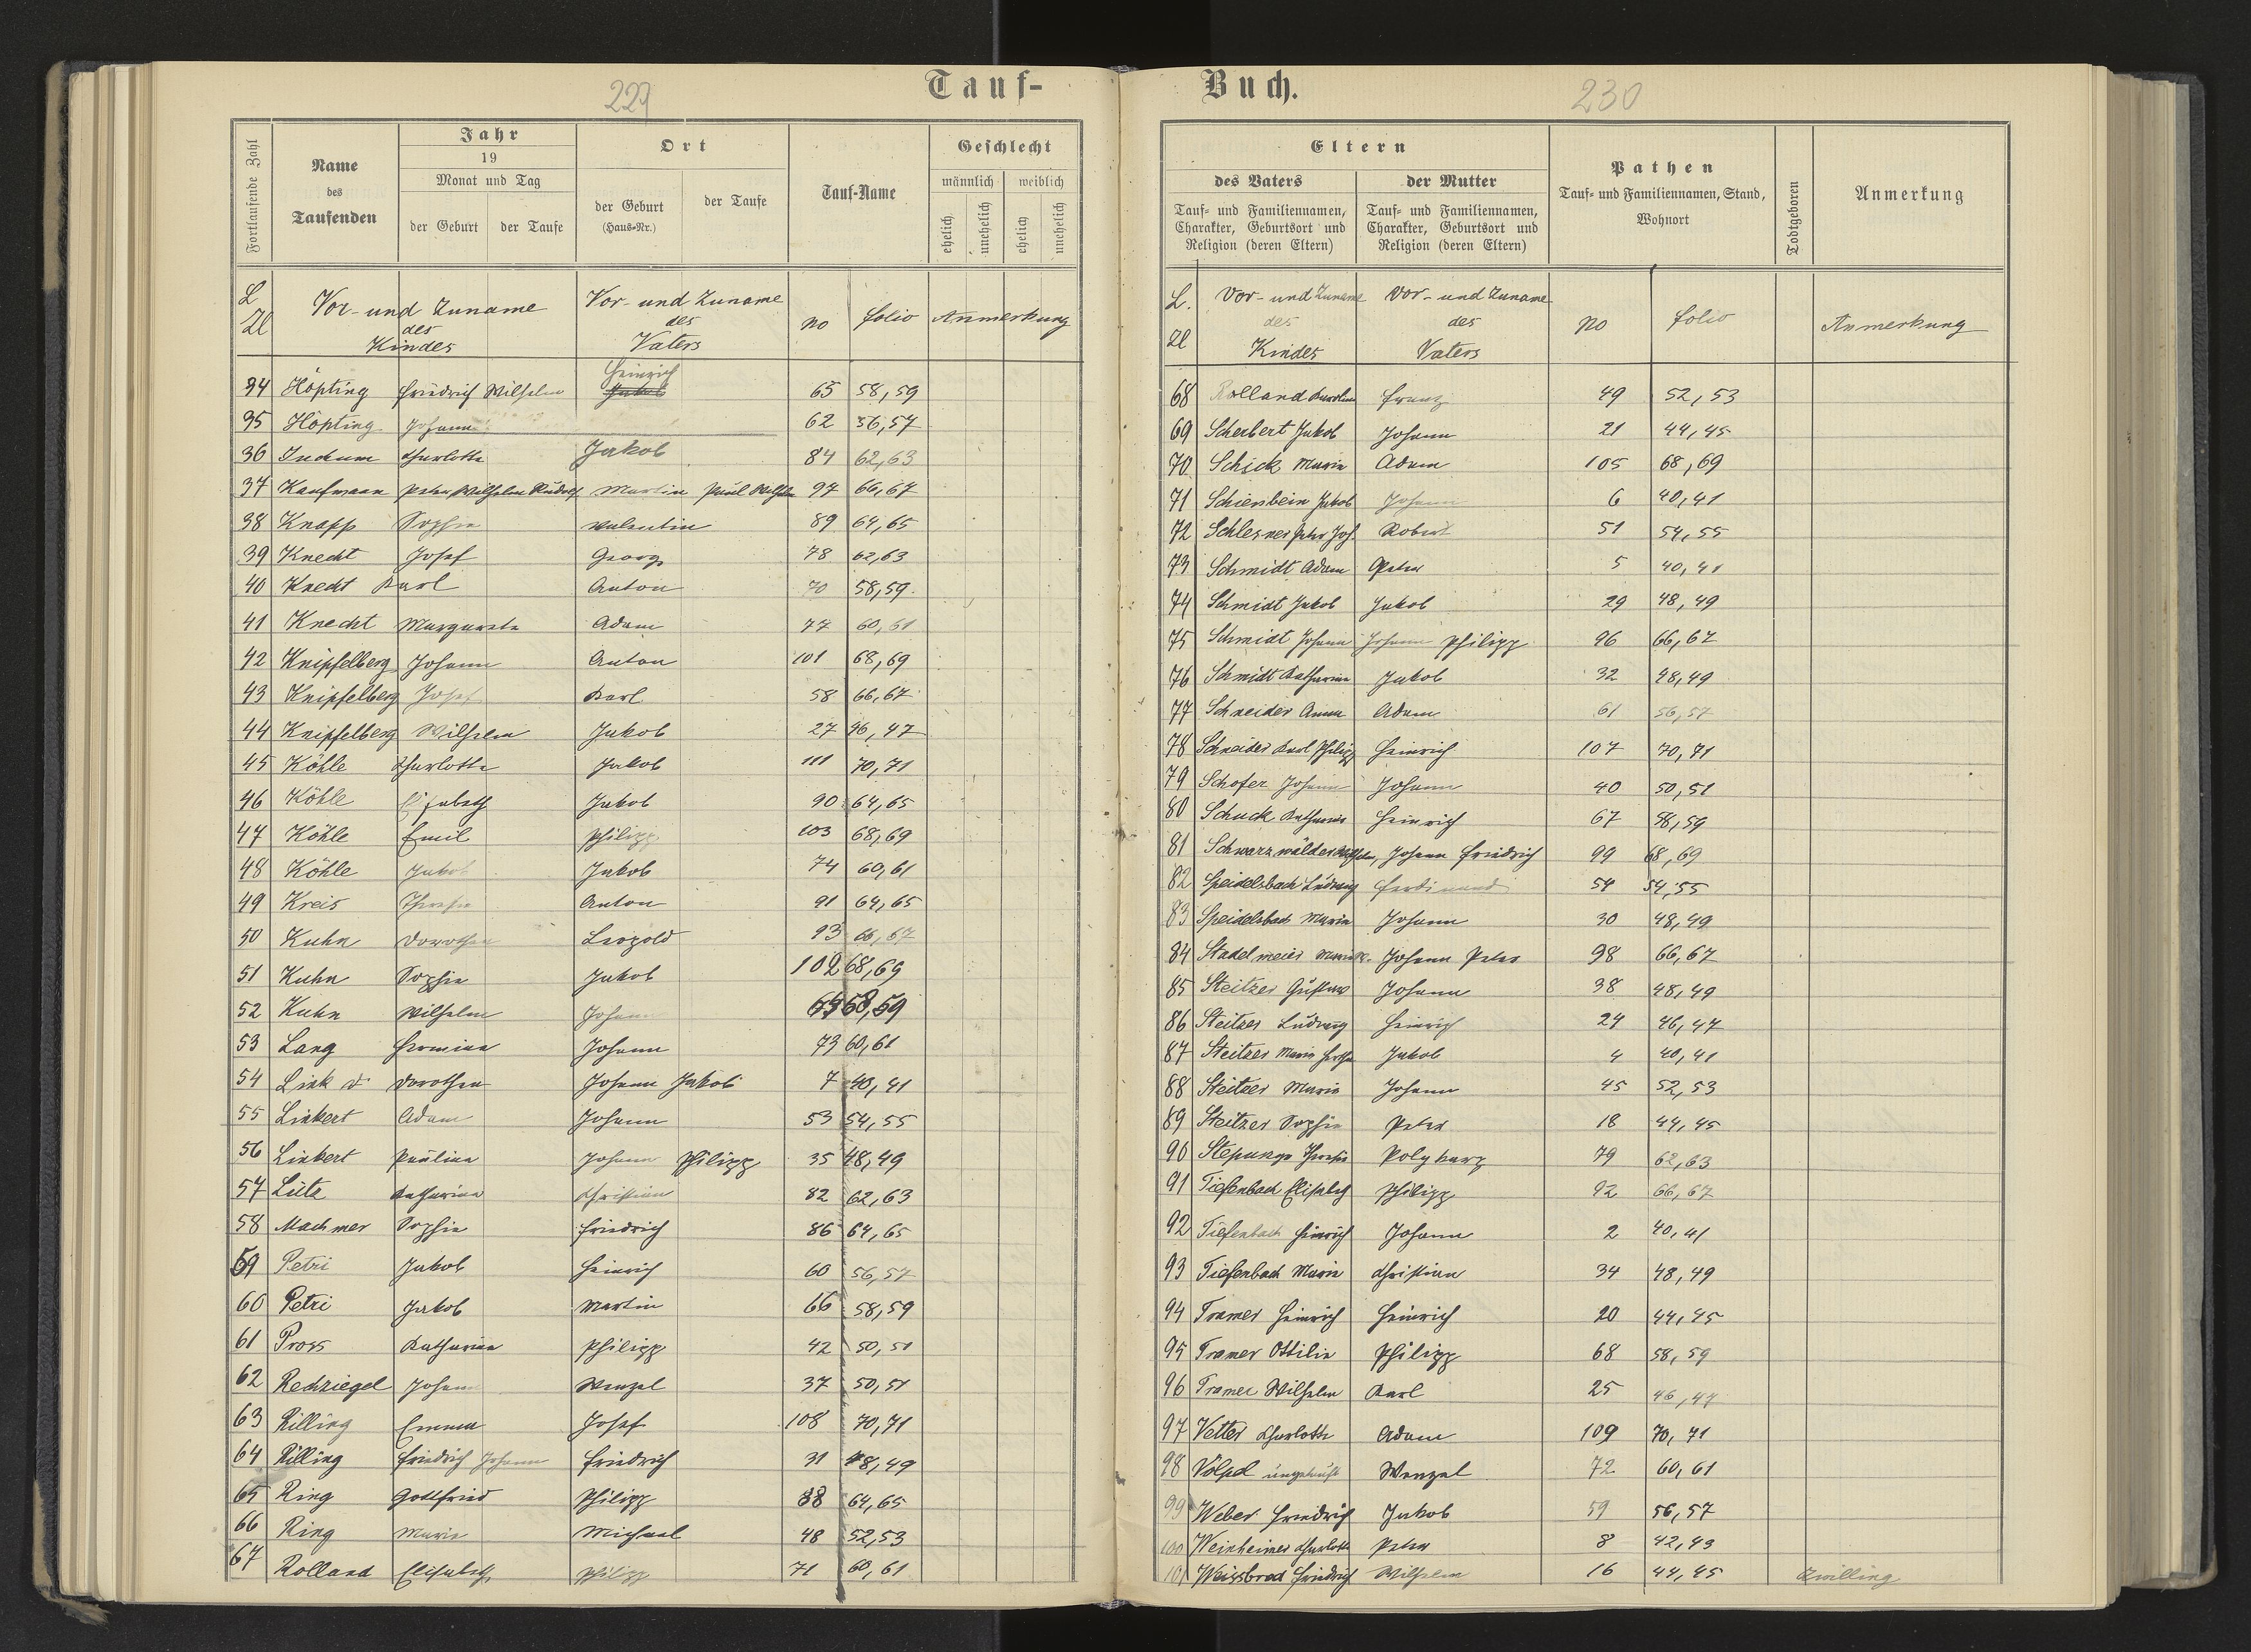 229
Tauf-
Fortlaufende Zahl
Name
des
Taufenden
Jahr
19
Monat und Tag
der Geburt
der Taufe
Ort
der Geburt
(Haus-Nr.)
der Taufe
Tauf-Name
Geschlecht
männlich
weiblich
ehelich
unehelich
ehelich
unehelich
L Zl
Vor- und Zuname des Kindes
Vor- und Zuname des Vaters
No
folio
Anmerkung
34 Höpting Friedrich Wilhelm Heinrich 65 58,59
35 Höpting Johann 62 56,57
36 Charlotte Jakob 84 62,63
37 Kaufmann Peter Wilhelm Rudolf Martin Paul Wilhelm 97 66,67
38 Knapp Sophie Valentin 89 64,65
39 Knecht Josef Georg 78 62,63
40 Knecht Karl Anton 70 58,59.
41 Knecht Margareta Adam 77 60,61
42 Knipfelberg Johann Anton 101 68,69
43 Knipfelberg Josef Karl 58 66,67
44 Knipfelberg Wilhelm Jakob 27 46,47
45 Köhle Charlotte Jakob 111 70,71
46 Köhle Elisabeth Jakob 90 64,65
47 Köhle Emil Philipp 103 68,69
48 Köhle Jakob Jakob 74 60,61
49 Kreis Theresia Anton 91 64,65
50 Kuhn Dorothea Leopold 93 66,67
51 Kuhn Sophie Jakob 102 68,69
52 Kuhn Wilhelm Johann 58,59
53 Lang Hermina Johann 73 60,61
54 Link Dorothea Johann Jakob 7 40,41
55 Linkert Adam Johann 53 54,55
56 Linkert Paulina Johann Philipp 35 48,49
57 Lutz Katharina Christian 82 62,63
58 Machmer Sophie Friedrich 86 64,65
59 Petri Jakob Heinrich 60 56,57
60 Petri Jakob Martin 66 58,59
61 Pross Katharina Philipp 42 50,51
62 Redziegel Johann Wenzel 37 50,51
63 Rilling Emma Josef 108 70,71
64 Rilling Friedrich Johann Friedrich 31 48,49
65 Ring Gottfried Philipp 88 64,65
66 Ring Maria Michael 48 52,53
67 Rolland Elisabeth Philipp 71 60,61
Buch.
230
Eltern
des Vaters
Tauf- und Familiennamen,
Charakter, Geburtsort und
Religion (deren Eltern)
der Mutter
Tauf- und Familiennamen,
Charakter, Geburtsort und
Religion (deren Eltern)
Pathen
Tauf- und Familiennamen, Stand,
Wohnort
Todtgeboren
Anmerkung
L. Zl
Vor- und Zuname des Kindes
Vor- und Zuname des Vaters
No
folio
Anmerkung
68 Rolland Karolina Franz 49 52,53
69 Scherbert Jakob Johann 21 44,45
70 Schick Maria Adam 105 68,69
71 Schienbein Jakob Johann 6 40,41
72 Schlesner Peter Joh. Robert 51 54,55
73 Schmidt Adam Peter 5 40,41
74 Schmidt Jakob Jakob 29 48,49
75 Schmidt Johann Johann Philipp 96 66,67
76 Schmidt Katharina Jakob 32 48,49
77 Schneider Anna Adam 61 56,57
78 Schneider Karl Philipp Heinrich 107 70,71
79 Schofer Johann Johann 40 50,51
80 Schuck Katharina Heinrich 67 58,59
81 Schwarzwälder Wilhelm, Johann Friedrich 99 68,69
82 Speidelsbach Ludwig Ferdinand 54 54,55
83 Speidelsbach Maria Johann 30 48,49
84 Stadelmeier Johann Peter 98 66,67
85 Steitzer Gustav Johann 38 48,49
86 Steitzer Ludwig Heinrich 24 46,47
87 Steitzer Maria Jakob 4 40,41
88 Steitzer Maria Johann 45 52,53
89 Steitzer Sophie Peter 18 44,45
90 Theresia Polykarp 79 62,63
91 Tiefenbach Elisabeth Philipp 92 66,67
92 Tiefenbach Heinrich Johann 2 40,41
93 Tiefenbach Maria Christian 34 48,49
94 Tramer Heinrich Heinrich 20 44,45
95 Tramer Ottilie Philipp 68 58,59
96 Tramer Wilhelm Karl 25 46,47
97 Vetter Charlotte Adam 109 70,71
98 Völpel ungetauft Wenzel 72 60,61
99 Weber Friedrich Jakob 59 56,57
100 Weinheimer Charlotte Peter 8 42,43
101 Weissbrod Friedrich Wilhelm 16 44,45 Zwilling